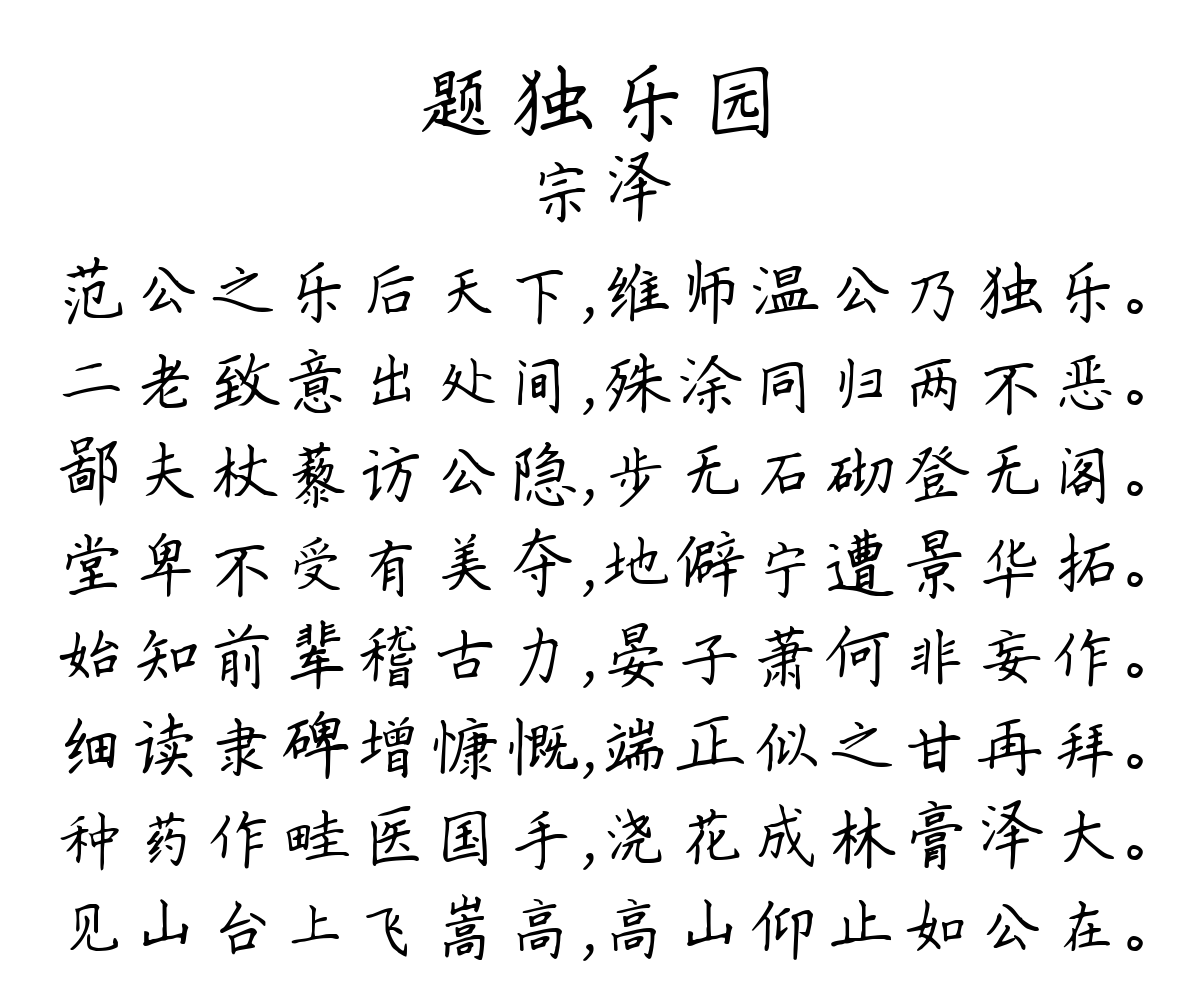 题独乐园
宗泽
范公之乐后天下,维师温公乃独乐。
二老致意出处间,殊涂同归两不恶。
鄙夫杖藜访公隐,步无石砌登无阁。
堂卑不受有美夺,地僻宁遭景华拓。
始知前辈稽古力,晏子萧何非妄作。
细读隶碑增慷慨,端正似之甘再拜。
种药作畦医国手,浇花成林膏泽大。
见山台上飞嵩高,高山仰止如公在。